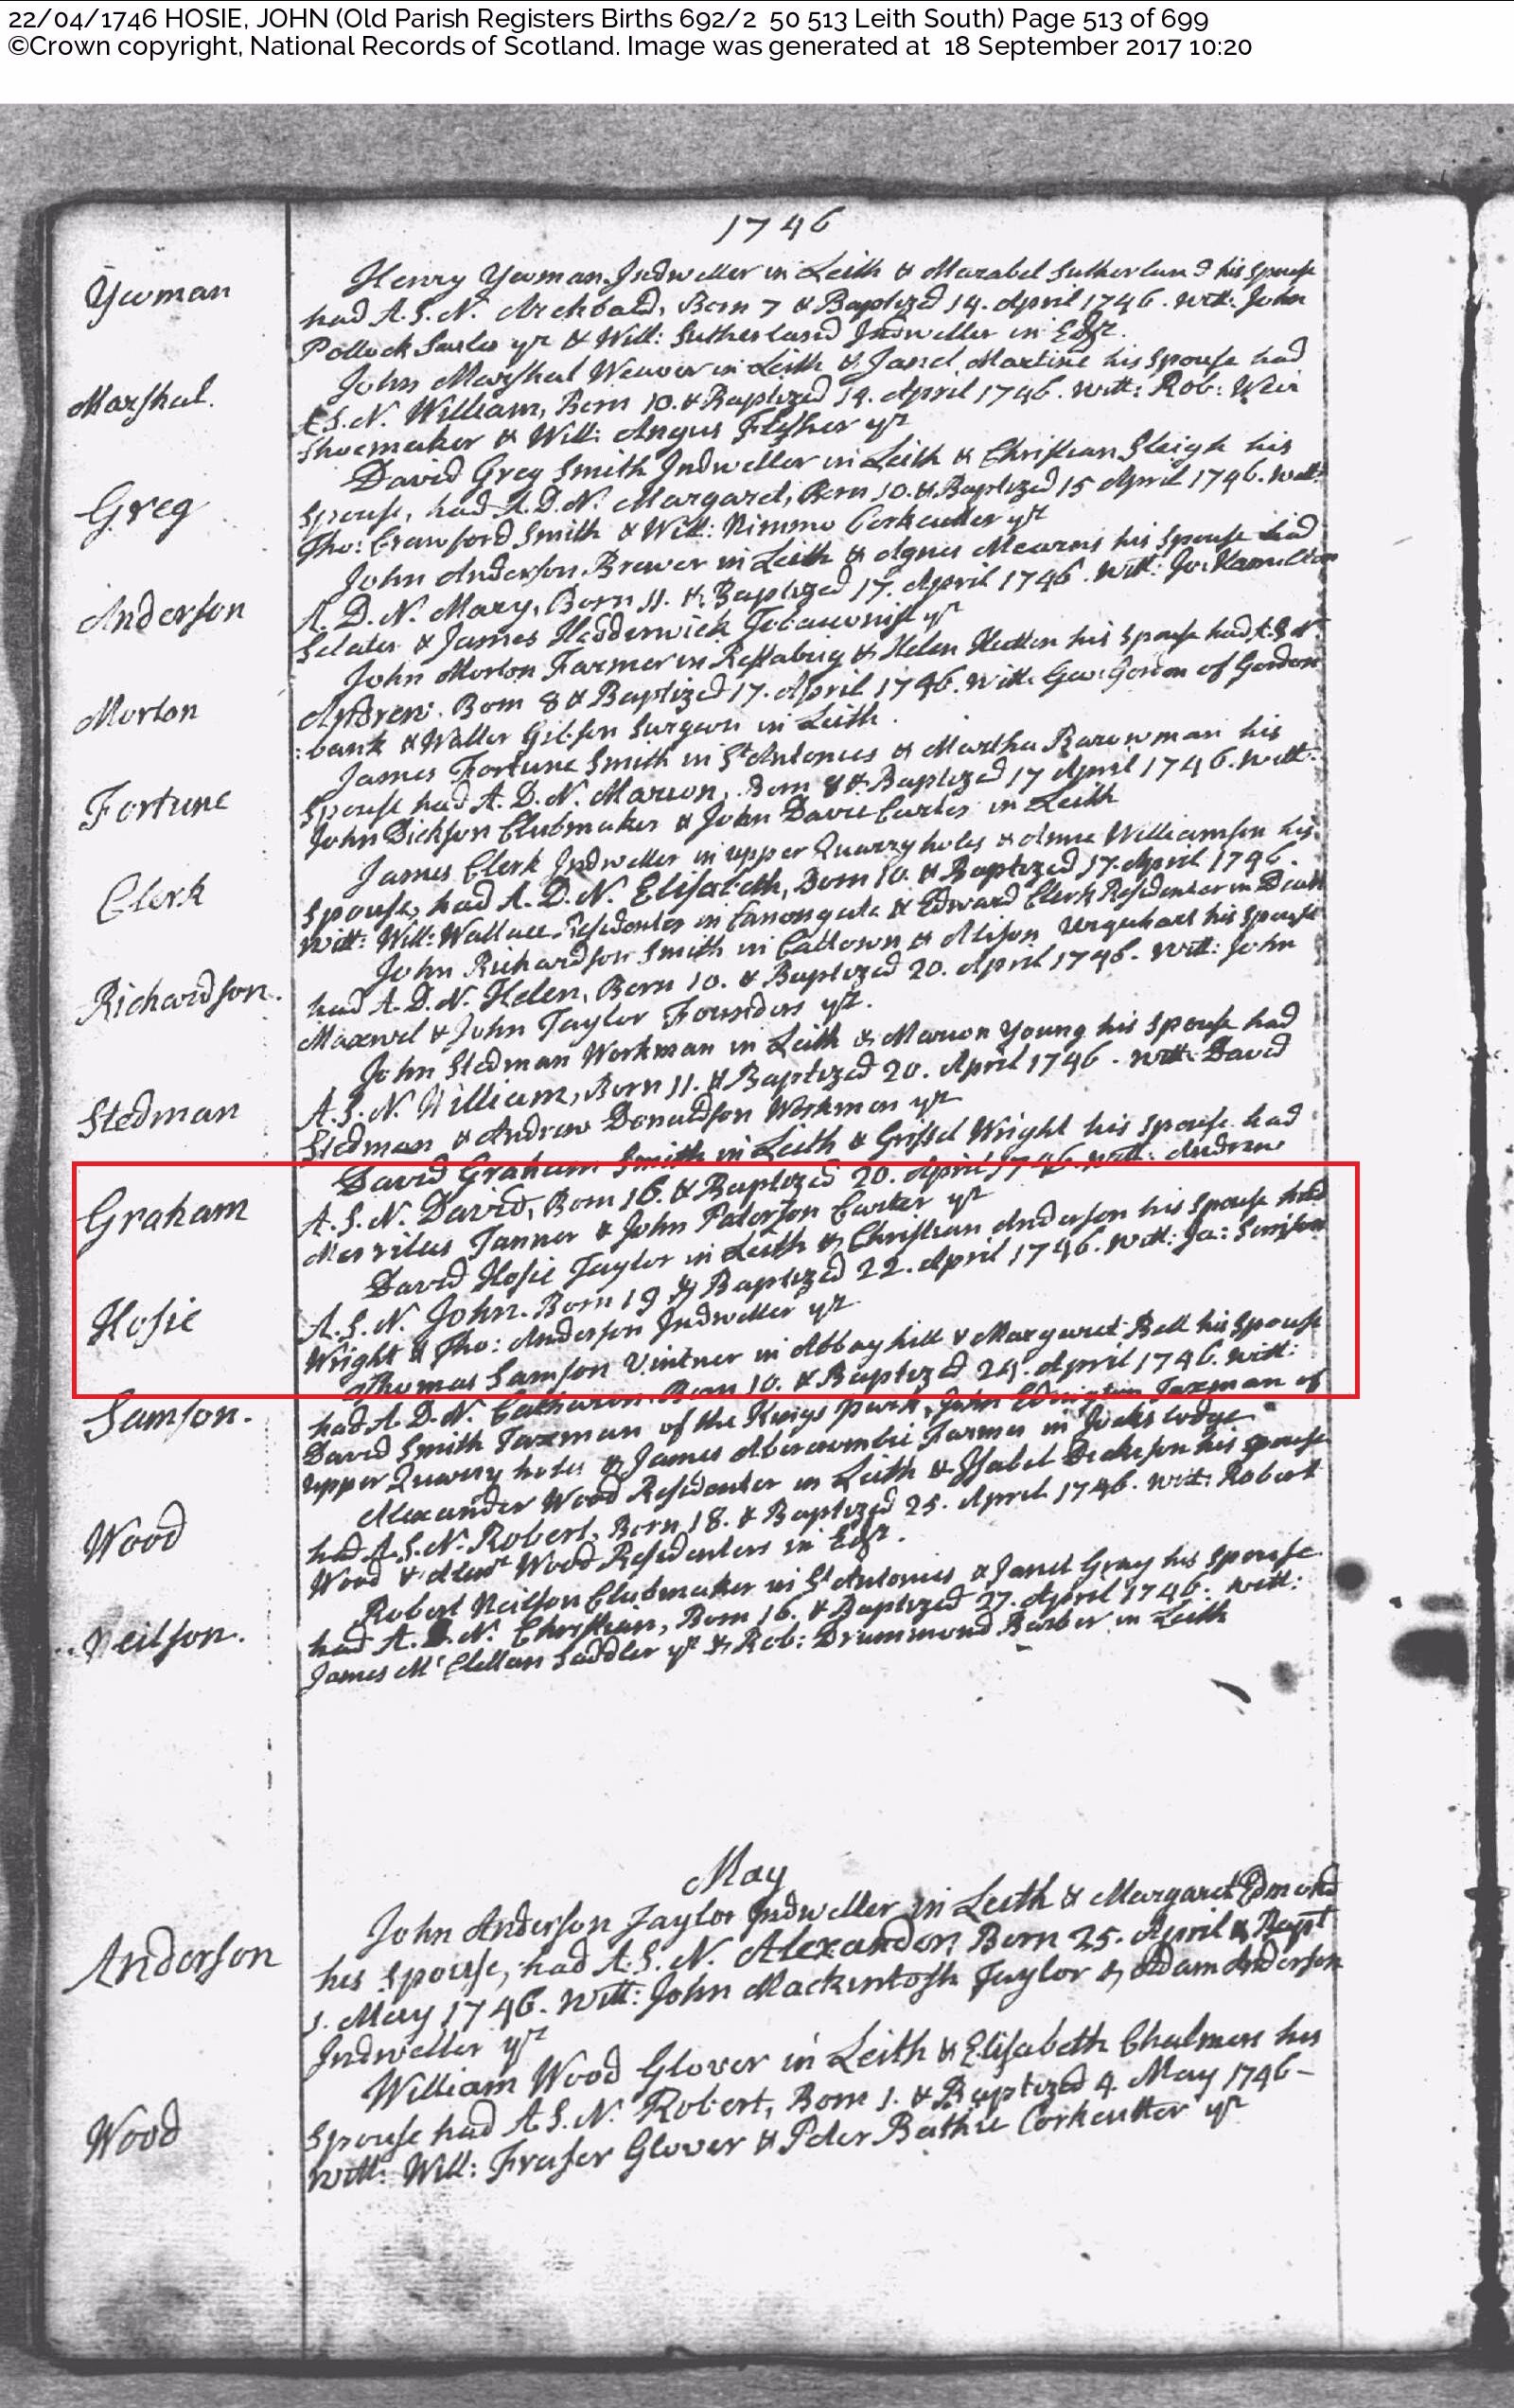 22/04/1746 HOSIE, JOHN (Old Parish Registers Births 692/2 50 513 Leith South) Page 513 of 699
©Crown copyright, National Records of Scotland. Image was generated at 18 September 2017 10:20
1746
Yewman
Henry Yewman Indweller in Leith & Marabel Sutherland his spouse
had A. S. N. Archbald, Born 7 & Baptized 14. April 1746. Witt: John
Pollock yr & Will: Sutherland Indweller in Edr.
Marshal.
John Marshal Weaver in Leith & Janet Martine his Spouse had
A. S. N. William, Born 10. & Baptized 14. April 1746. Witt: Rob: Weir
Shoemaker & Will: Angus Flesher yr
Greg
David Greg Smith Indweller in Leith & Christian Sleigh his
Spouse, had A. D. N. Margaret, Born 10. & Baptized 15 April 1746. Witt:
Tho: Crawford Smith & Will: Nimmo Corkcutter yr
Anderson
John Anderson Brewer in Leith & Agnes Mearns his Spouse had
A. D. N. Mary, Born 11. & Baptized 17. April 1746. Witt: Jo: Hamilton
Sclater & James Hedderwick Tobacconist yr
Morton
John Morton Farmer in Restabrig & Helen his Spouse had A. S. N.
Andrew. Born 8 & Baptized 17. April 1746. Witt: Geo: Gordon of Gordon
:bank & Walter Gibson Surgeon in Leith.
Fortune
James Fortune Smith in St Antonies & Martha his
Spouse had A. D. N. Marion, Born 8 & Baptized 17 April 1746. Witt:
John Dickson Clubmaker & John Davie Carter in Leith
Clerk
James Clerk Indweller in upper Quarryholes & Anne Williamson his
Spouse, had A. D. N. Elisabeth, Born 10. & Baptized 17. April 1746.
Witt: Will: Wallace Residenter in Canongate & Edward Clerk Residenter in Dean
Richardson.
John Richardson Smith in Caltown & Alison Urquhart his Spouse
had A. D. N. Helen, Born 10. & Baptized 20. April 1746. Witt: John
Maxwel & John Taylor Founders yr.
Stedman
John Stedman Workman in Leith & Marion Young his Spouse had
A. S. N. William, Born 11. & Baptized 20. April 1746. Witt: David
Stedman & Andrew Donaldson Workmen yr
Graham
David Graham Smith in Leith & Grissel Wright his Spouse had
A. S. N. David, Born 16. & Baptized 20. April 1746. Witt: Andrew
Tanner & John Paterson Carter yr
Hosie
David Hosie Taylor in Leith & Christian Anderson his Spouse had
A. S. N. John. Born 19 & Baptized 22. April 1746. Witt: Ja:
Wright & Tho: Anderson Indweller yr
Samson.
Thomas Samson Vintner in Abbayhill & Margaret Bell his Spouse
had A. D. N. Catharin Born 10. & Baptized 24. April 1746. Witt:
David Smith Taxman of the Kings park, John Taxman of
upper Quarry holes & James Abercrombie Farmer in Jocks lodge
Wood
Alexander Wood Residenter in Leith & Isabel Dickson his Spouse
had A. S. N. Robert, Born 18. & Baptized 25. April 1746. Witt: Robert
Wood & Alexr Wood Residenters in Edr.
Neilson.
Robert Neilson Clubmaker in St Antonies & Janet Gray his Spouse
had A. D. N. Christian, Born 16. & Baptized 27. April 1746. Witt:
James McClellan Saddler yr & Rob: Drummond Barber in Leith
May
Anderson
John Anderson Taylor Indweller in Leith & Margaret Edmond
his Spouse, had A. S. N. Alexander, Born 25. April & Bapt
1. May 1746. Witt: John Mackintosh Taylor & Adam Anderson
Indweller yr
Wood
William Wood Glover in Leith & Elisabeth Chalmers his
Spouse had A S. N. Robert, Born 1. & Baptized 4. May 1746-
Witt: Will: Fraser Glover & Peter Bathie Corkcutter yr